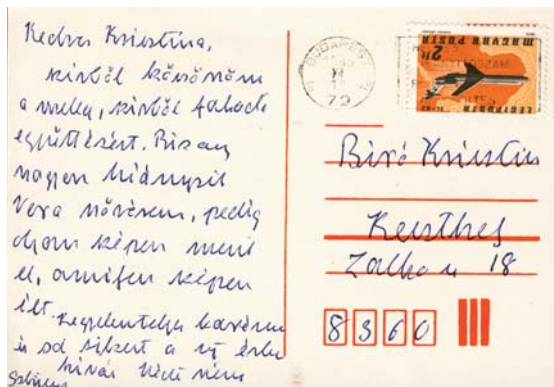 Kedves Krisztina,
szívből köszönöm
a meleg, szívből fakadó
együttérzést. Bizony
nagyon hiányzik
Vera nővérem, pedig
olyan szépen ment
el, amilyen szépen
élt. Kegyelettel
és sok sikert a új
kíván Védi néni
BUDAPEST
72
MAGYAR POSTA
2 Ft
LÉGIPOSTA
Biró Krisztina
Keszthely
Zalka u 18
8360